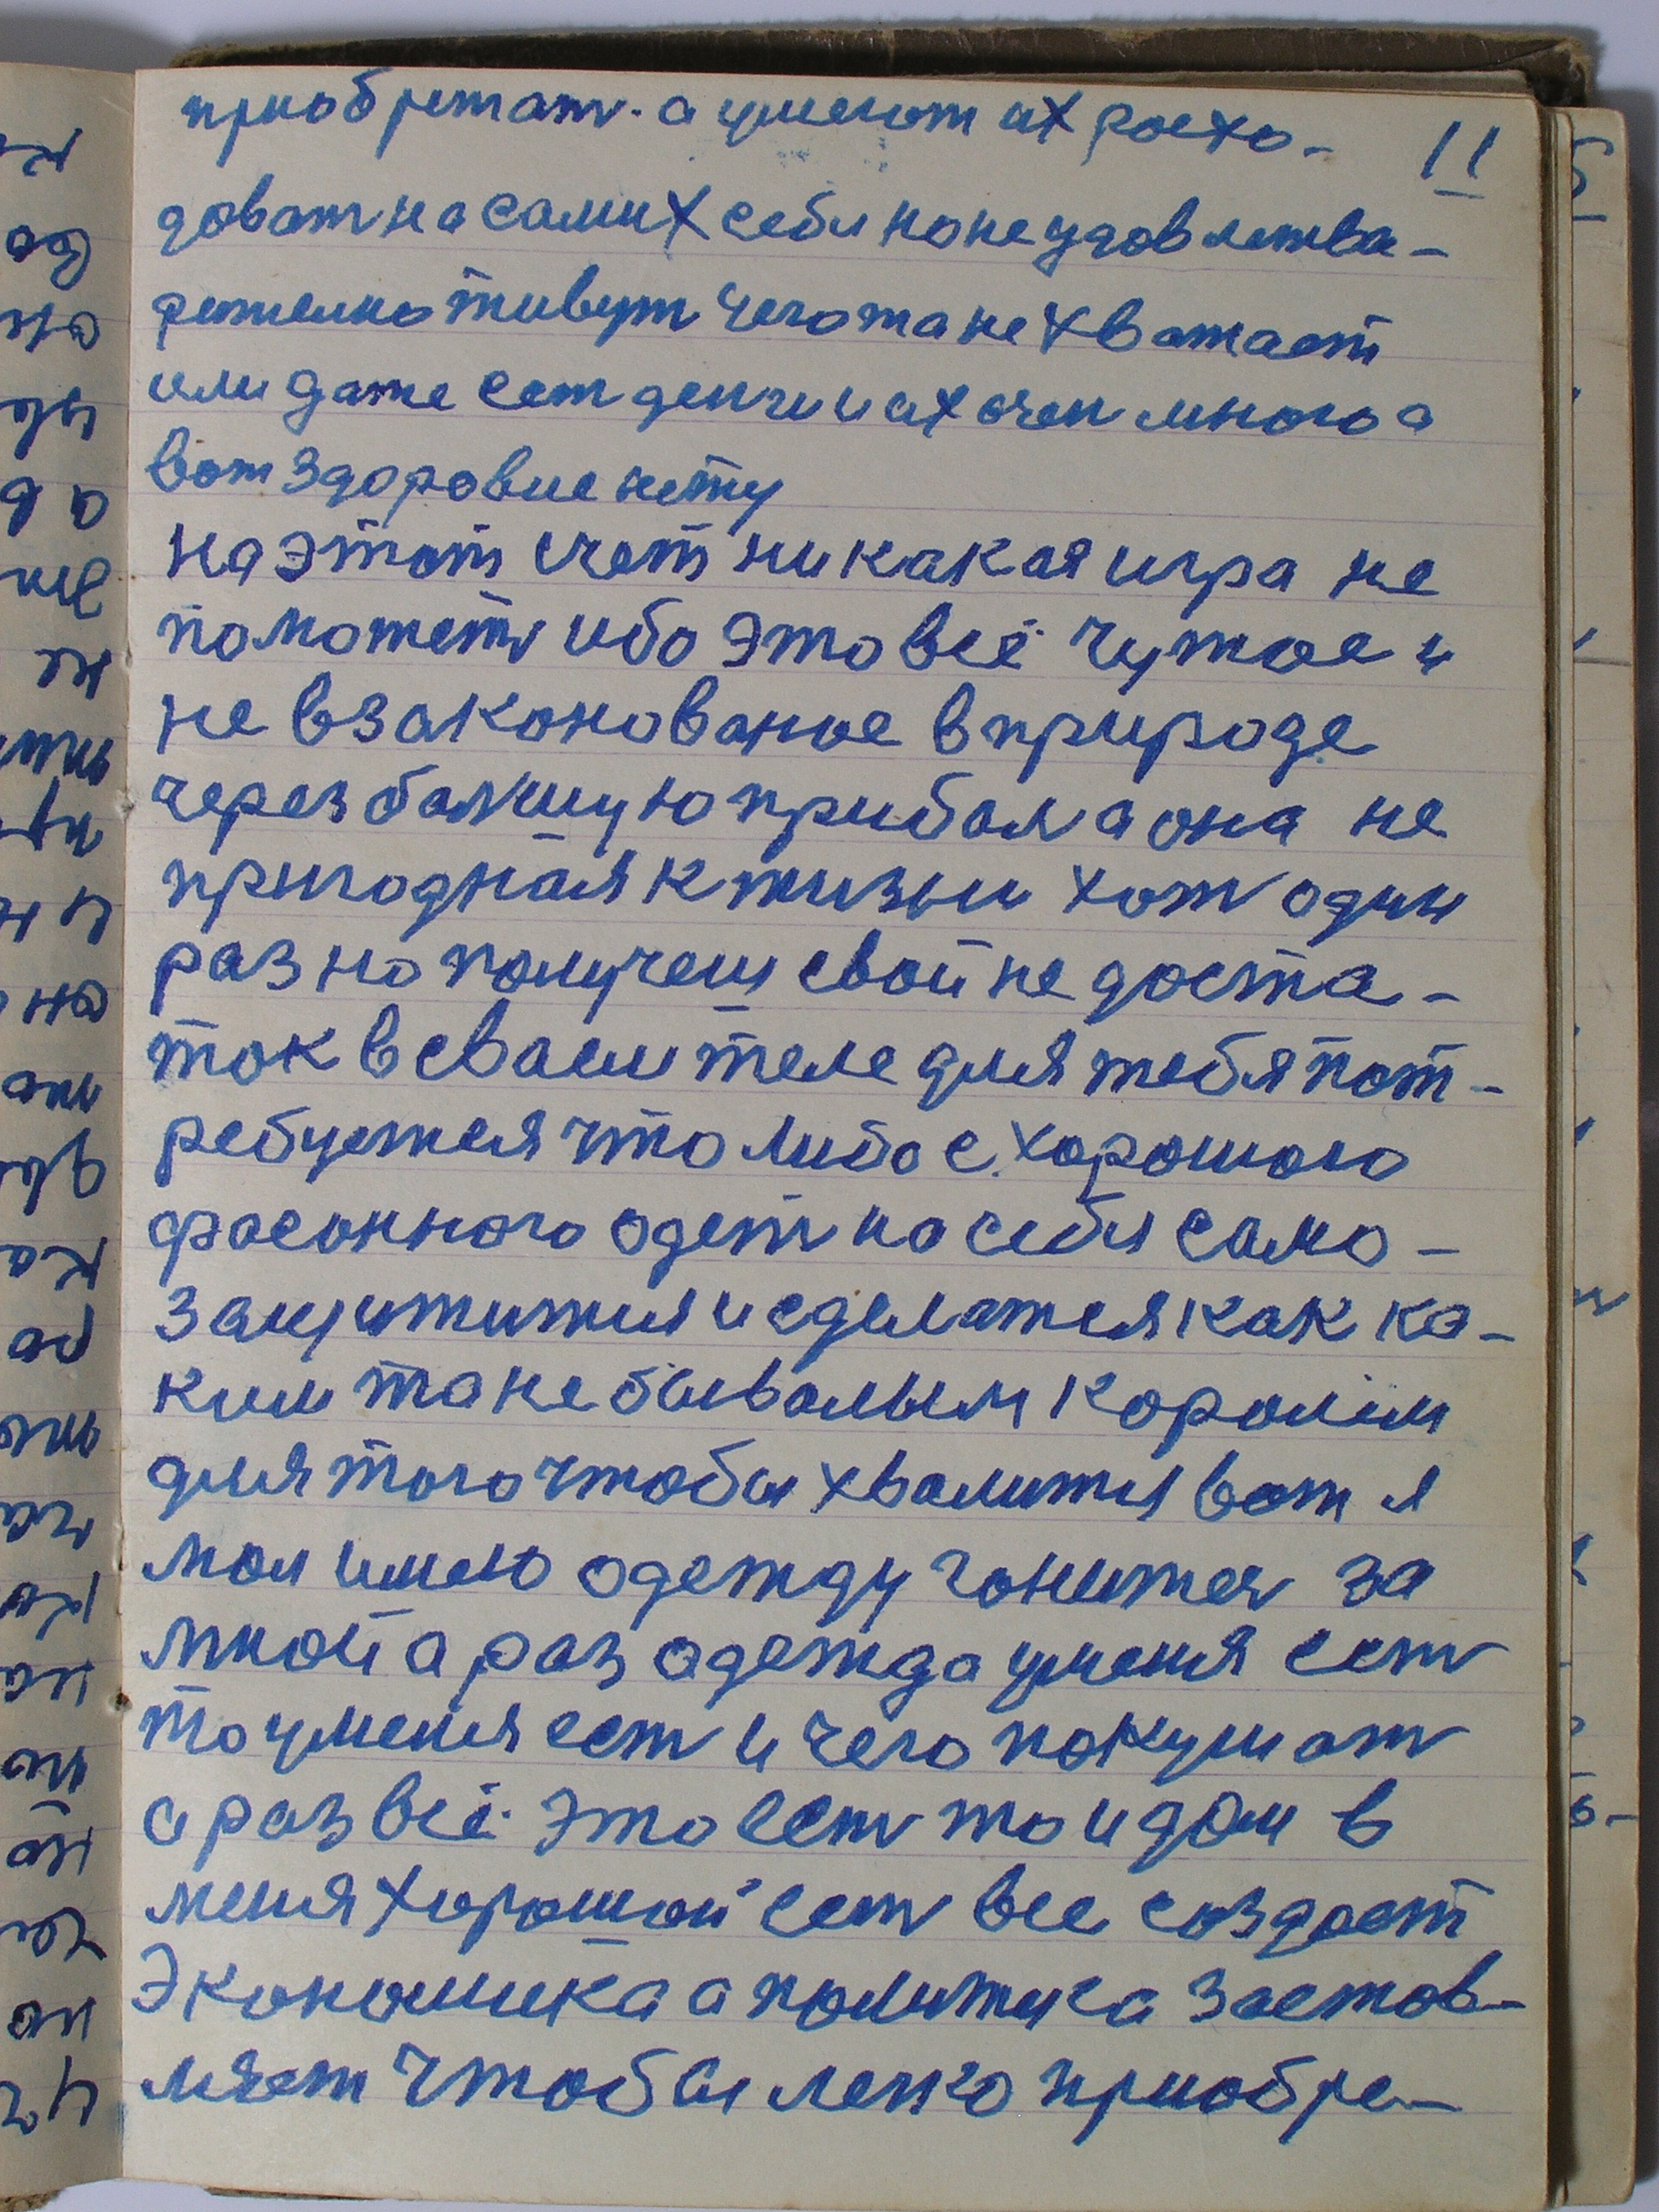 11
приобретат. а умеют их росхо-
доват на самих себя но не удовлетва-
рително живут чегота не хватает
или даже ест денги и их очен много а
вот здоровие нету
на этот счет никакая игра не
поможеть ибо это всё чужое и
не взаконованое в природе
через болшую прибал а она не
пригодная к жизни хоть один
раз но получеш свой не доста-
ток в сваем теле для тебя пот-
ребуется что либо с хорошого
фасонного одеть на себя само-
защититися и сделатся как ка-
ким та не бывалым королём
для того чтобы хвалится вот я
мол имею одежду гонится за
мной а раз одежда уменя есть
то уменя есть и чего покушать
а раз всё это есть то и дом в
меня хороший есть все создает
Экономика а политика застав-
ляет чтобы легко приобре-